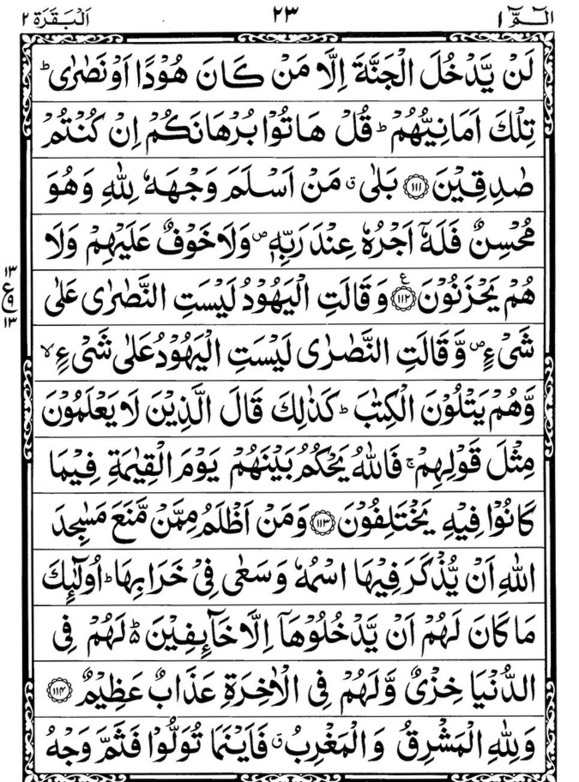 الٓمّٓ ١ ٢٣ اَلْبَقَرَة ٢
لَنْ يَّدْخُلَ الْجَنَّةَ اِلَّا مَنْ كَانَ هُوْدًا اَوْ نَصٰرٰى ؕ
تِلْكَ اَمَانِيُّهُمْ ؕ قُلْ هَاتُوْا بُرْهَانَكُمْ اِنْ كُنْتُمْ
صٰدِقِيْنَ ﴿۱۱۱﴾ بَلٰى ۗ مَنْ اَسْلَمَ وَجْهَهٗ لِلّٰهِ وَهُوَ
مُحْسِنٌ فَلَهٗۤ اَجْرُهٗ عِنْدَ رَبِّهٖ ۪ وَلَا خَوْفٌ عَلَيْهِمْ وَلَا
هُمْ يَحْزَنُوْنَ ﴿۱۱۲﴾ ع وَقَالَتِ الْيَهُوْدُ لَيْسَتِ النَّصٰرٰى عَلٰى
شَىْءٍ ۪ وَّقَالَتِ النَّصٰرٰى لَيْسَتِ الْيَهُوْدُ عَلٰى شَىْءٍ ۙ
وَّهُمْ يَتْلُوْنَ الْكِتٰبَ ؕ كَذٰلِكَ قَالَ الَّذِيْنَ لَا يَعْلَمُوْنَ
مِثْلَ قَوْلِهِمْ ۚ فَاللّٰهُ يَحْكُمُ بَيْنَهُمْ يَوْمَ الْقِيٰمَةِ فِيْمَا
كَانُوْا فِيْهِ يَخْتَلِفُوْنَ ﴿۱۱۳﴾ وَمَنْ اَظْلَمُ مِمَّنْ مَّنَعَ مَسٰجِدَ
اللّٰهِ اَنْ يُّذْكَرَ فِيْهَا اسْمُهٗ وَسَعٰى فِىْ خَرَابِهَا ؕ اُولٰٓئِكَ
مَا كَانَ لَهُمْ اَنْ يَّدْخُلُوْهَاۤ اِلَّا خَآئِفِيْنَ ؕ لَهُمْ فِى
الدُّنْيَا خِزْىٌ وَّلَهُمْ فِى الْاٰخِرَةِ عَذَابٌ عَظِيْمٌ ﴿۱۱۴﴾
وَلِلّٰهِ الْمَشْرِقُ وَالْمَغْرِبُ ۗ فَاَيْنَمَا تُوَلُّوْا فَثَمَّ وَجْهُ
١٣
ع
٩
١٣